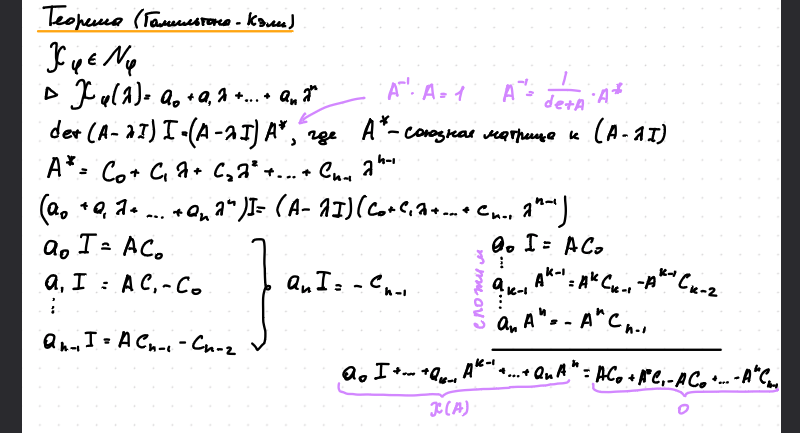 Теорема (Гамильтона-Кэли)
𝒳_φ ∈ N_φ
▷ 𝒳_φ(λ) = a₀ + a₁λ + ... + aₙλⁿ
A⁻¹·A = 1    A⁻¹ = 1/detA · A*
det(A-λI) I = (A-λI) A*, где A* - союзная матрица к (A-λI)
A* = C₀ + C₁λ + C₂λ² + ... + Cₙ₋₁ λⁿ⁻¹
(a₀ + a₁λ + ... + aₙλⁿ)I = (A-λI)(C₀ + C₁λ + ... + Cₙ₋₁ λⁿ⁻¹)
a₀ I = AC₀
a₁ I = AC₁ - C₀
⋮
aₙ₋₁ I = ACₙ₋₁ - Cₙ₋₂
aₙ I = -Cₙ₋₁
сложим
a₀ I = AC₀
⋮
aₖ₋₁ Aᵏ⁻¹ = AᵏCₖ₋₁ - Aᵏ⁻¹Cₖ₋₂
⋮
aₙ Aⁿ = -AⁿCₙ₋₁
a₀ I + ... + aₖ₋₁ Aᵏ⁻¹ + ... + aₙAⁿ = AC₀ + A²C₁ - AC₀ + ... - AⁿCₙ₋₁
𝒳(A)    0